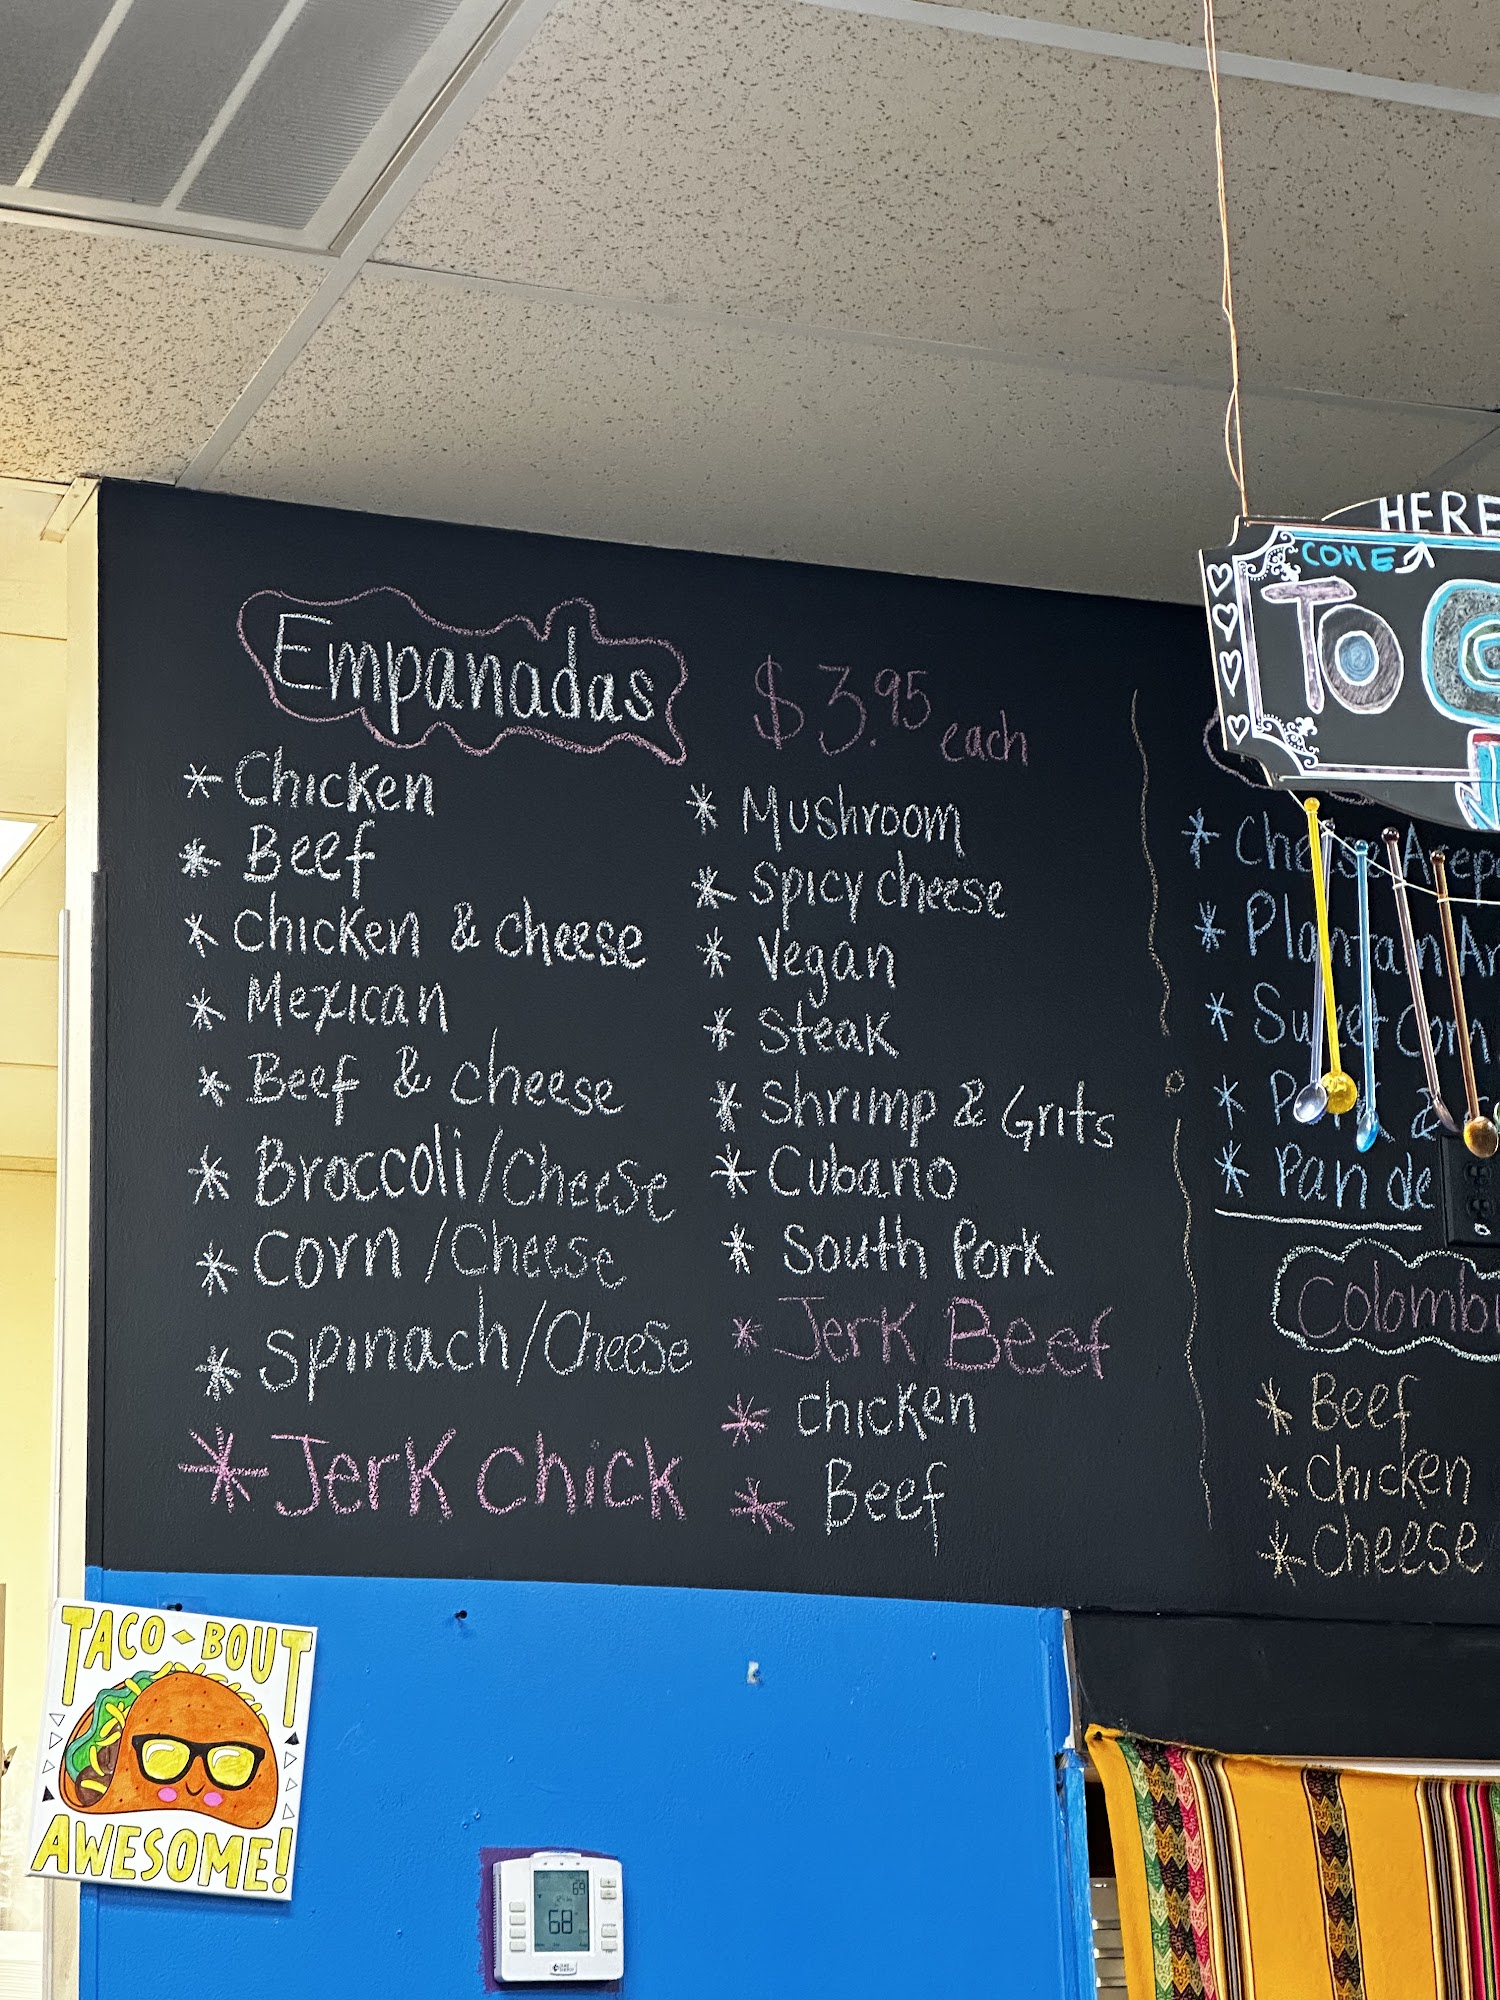 HERE
COME
TO
Empanadas
$3.95 each
* Chicken
* Beef
* Chicken & cheese
* Mexican
* Beef & cheese
* Broccoli/Cheese
* Corn/Cheese
* Spinach/Cheese
* Jerk Chick
* Mushroom
* Spicy cheese
* Vegan
* Steak
* Shrimp & Grits
* Cubano
* South Pork
* Jerk Beef
* Chicken
* Beef
* Cheese Arep
* Plantain Ar
* Sweet Corn
* Pan de
Colomb
* Beef
* Chicken
* Cheese
TACO-BOUT
AWESOME!
69
68